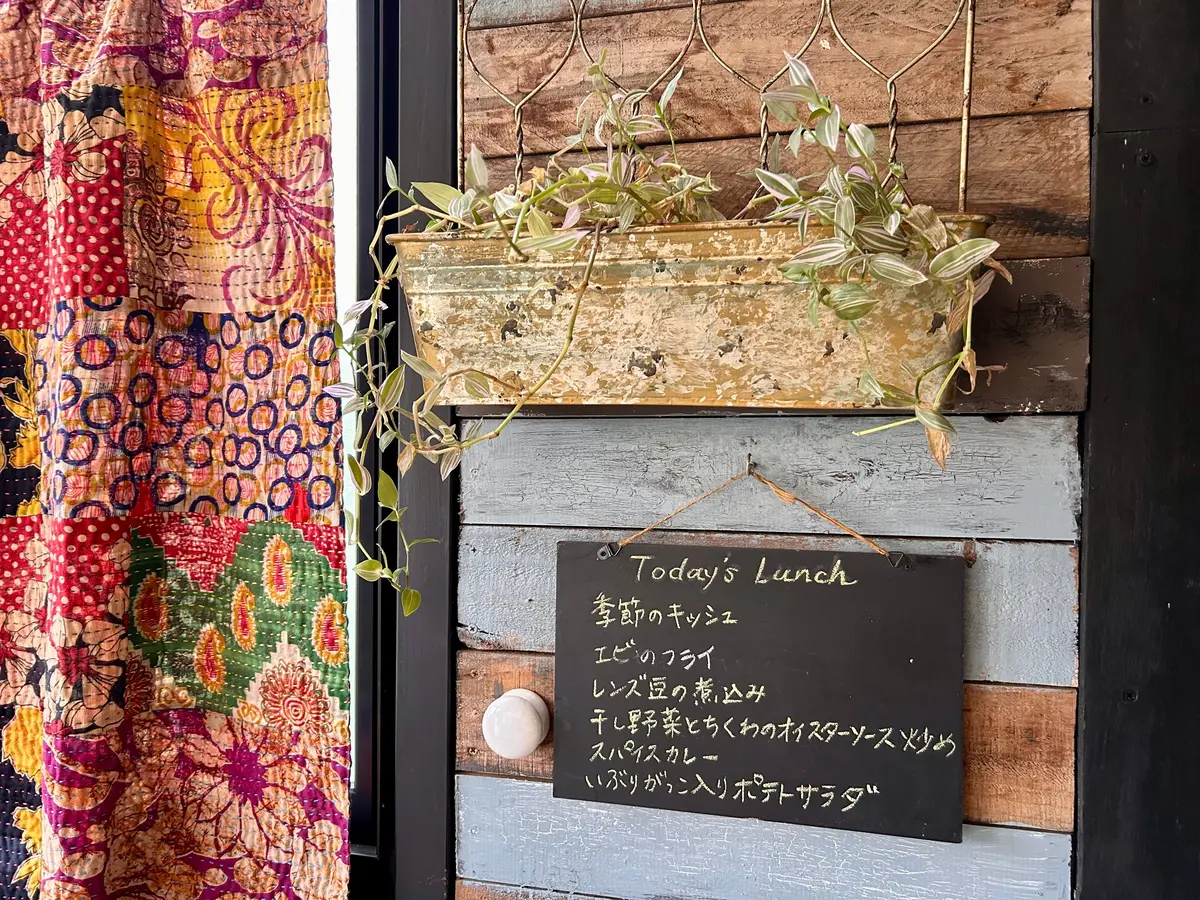 Today's Lunch
季節のキッシュ
エビのフライ
レンズ豆の煮込み
干し野菜とちくわのオイスターソース炒め
スパイスカレー
いぶりがっこ入りポテトサラダ